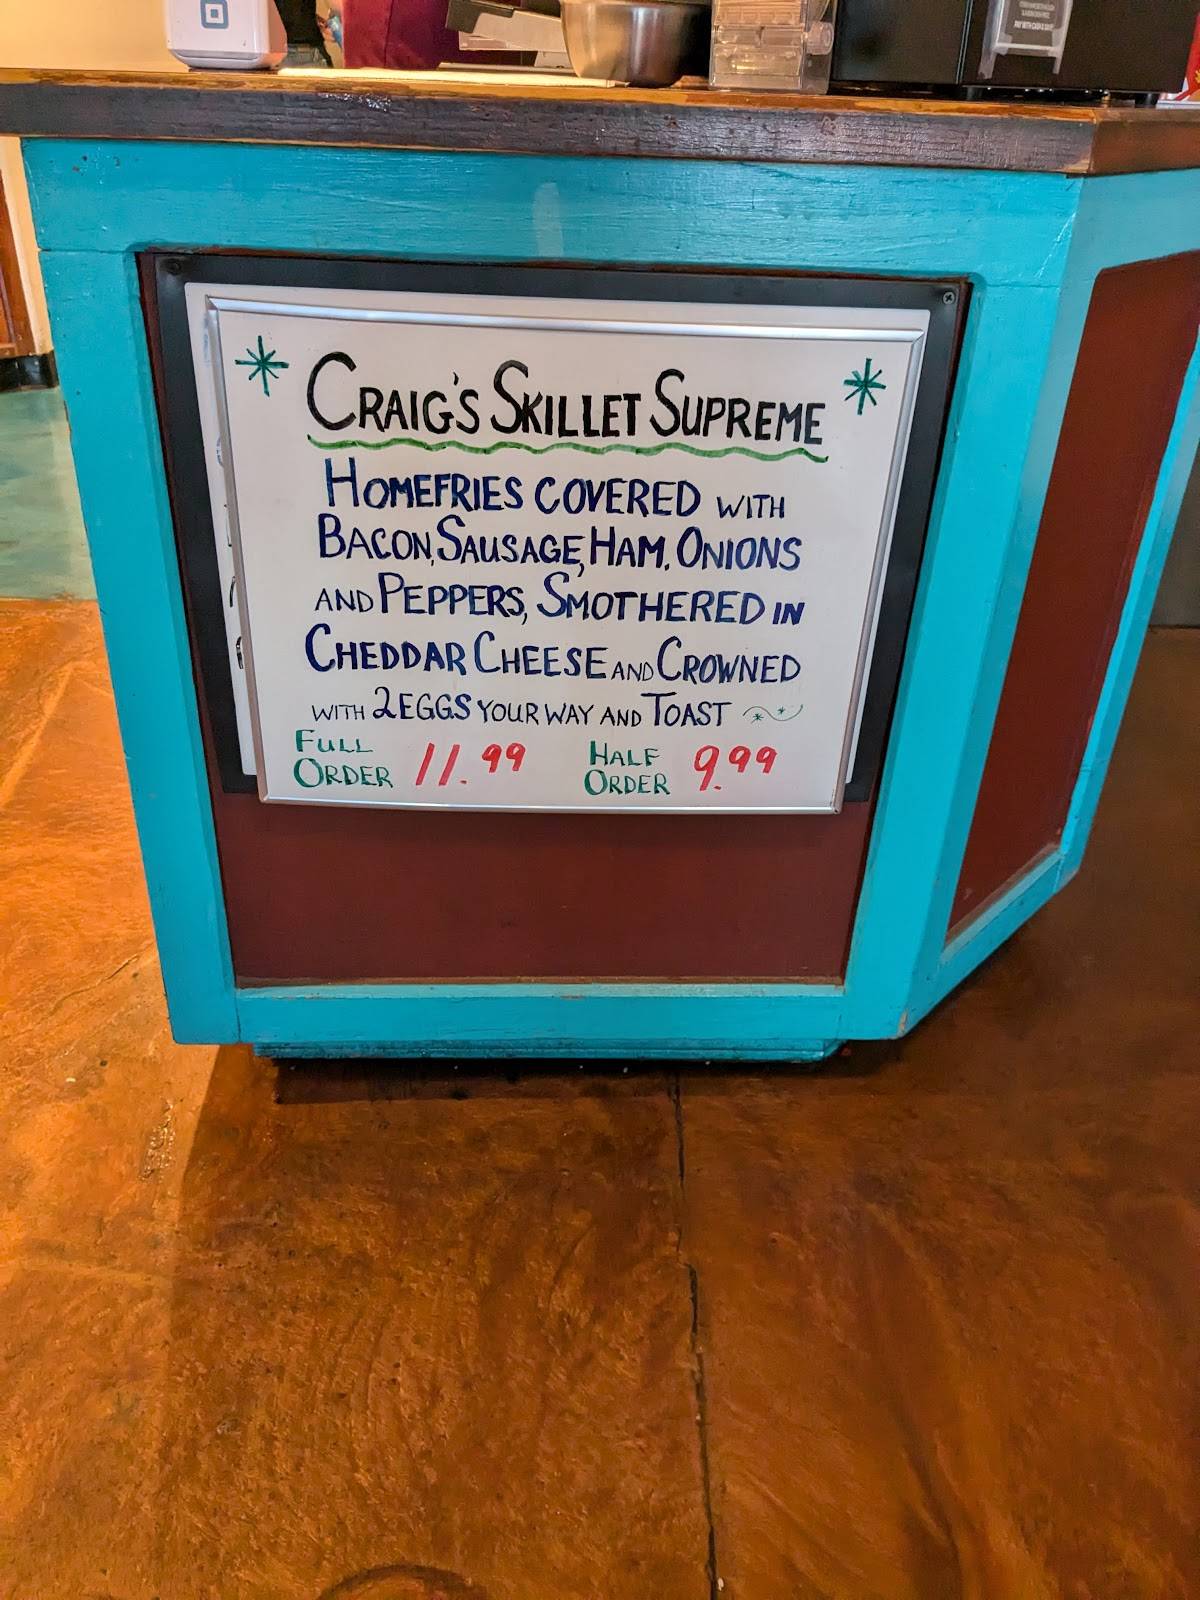 CRAIG'S SKILLET SUPREME
HOMEFRIES COVERED WITH
BACON, SAUSAGE, HAM, ONIONS
AND PEPPERS, SMOTHERED IN
CHEDDAR CHEESE AND CROWNED
WITH 2 EGGS YOUR WAY AND TOAST
FULL ORDER 11.99
HALF ORDER 9.99